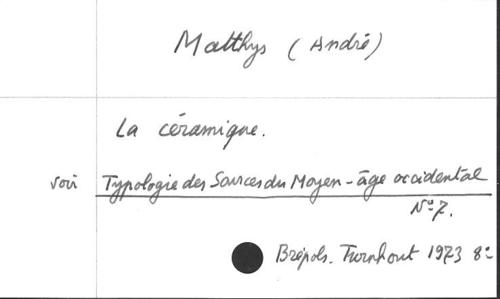 Matthys (André)
La céramique.
voir Typologie des Sources du Moyen-âge occidental
N° 7.
Brépols. Turnhout 1973 8°